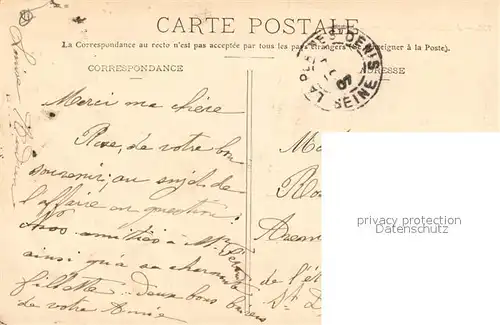 CARTE POSTALE
(La Correspondance au recto n'est pas acceptée par tous les pays étrangers (Se renseigner à la Poste).
CORRESPONDANCE
ADRESSE
LA PLAINE-ST-DENIS
SEINE
Louise
Merci ma chère
Rose, de votre bon
souvenir, au sujet de
l'affaire en question.
Nos amitiés à Mme
ainsi qu'à sa charmante
fillette. Deux bons baisers
de votre Amie
M
Ro
de l'é
St D
privacy protection
Copyright protected
privacy protection